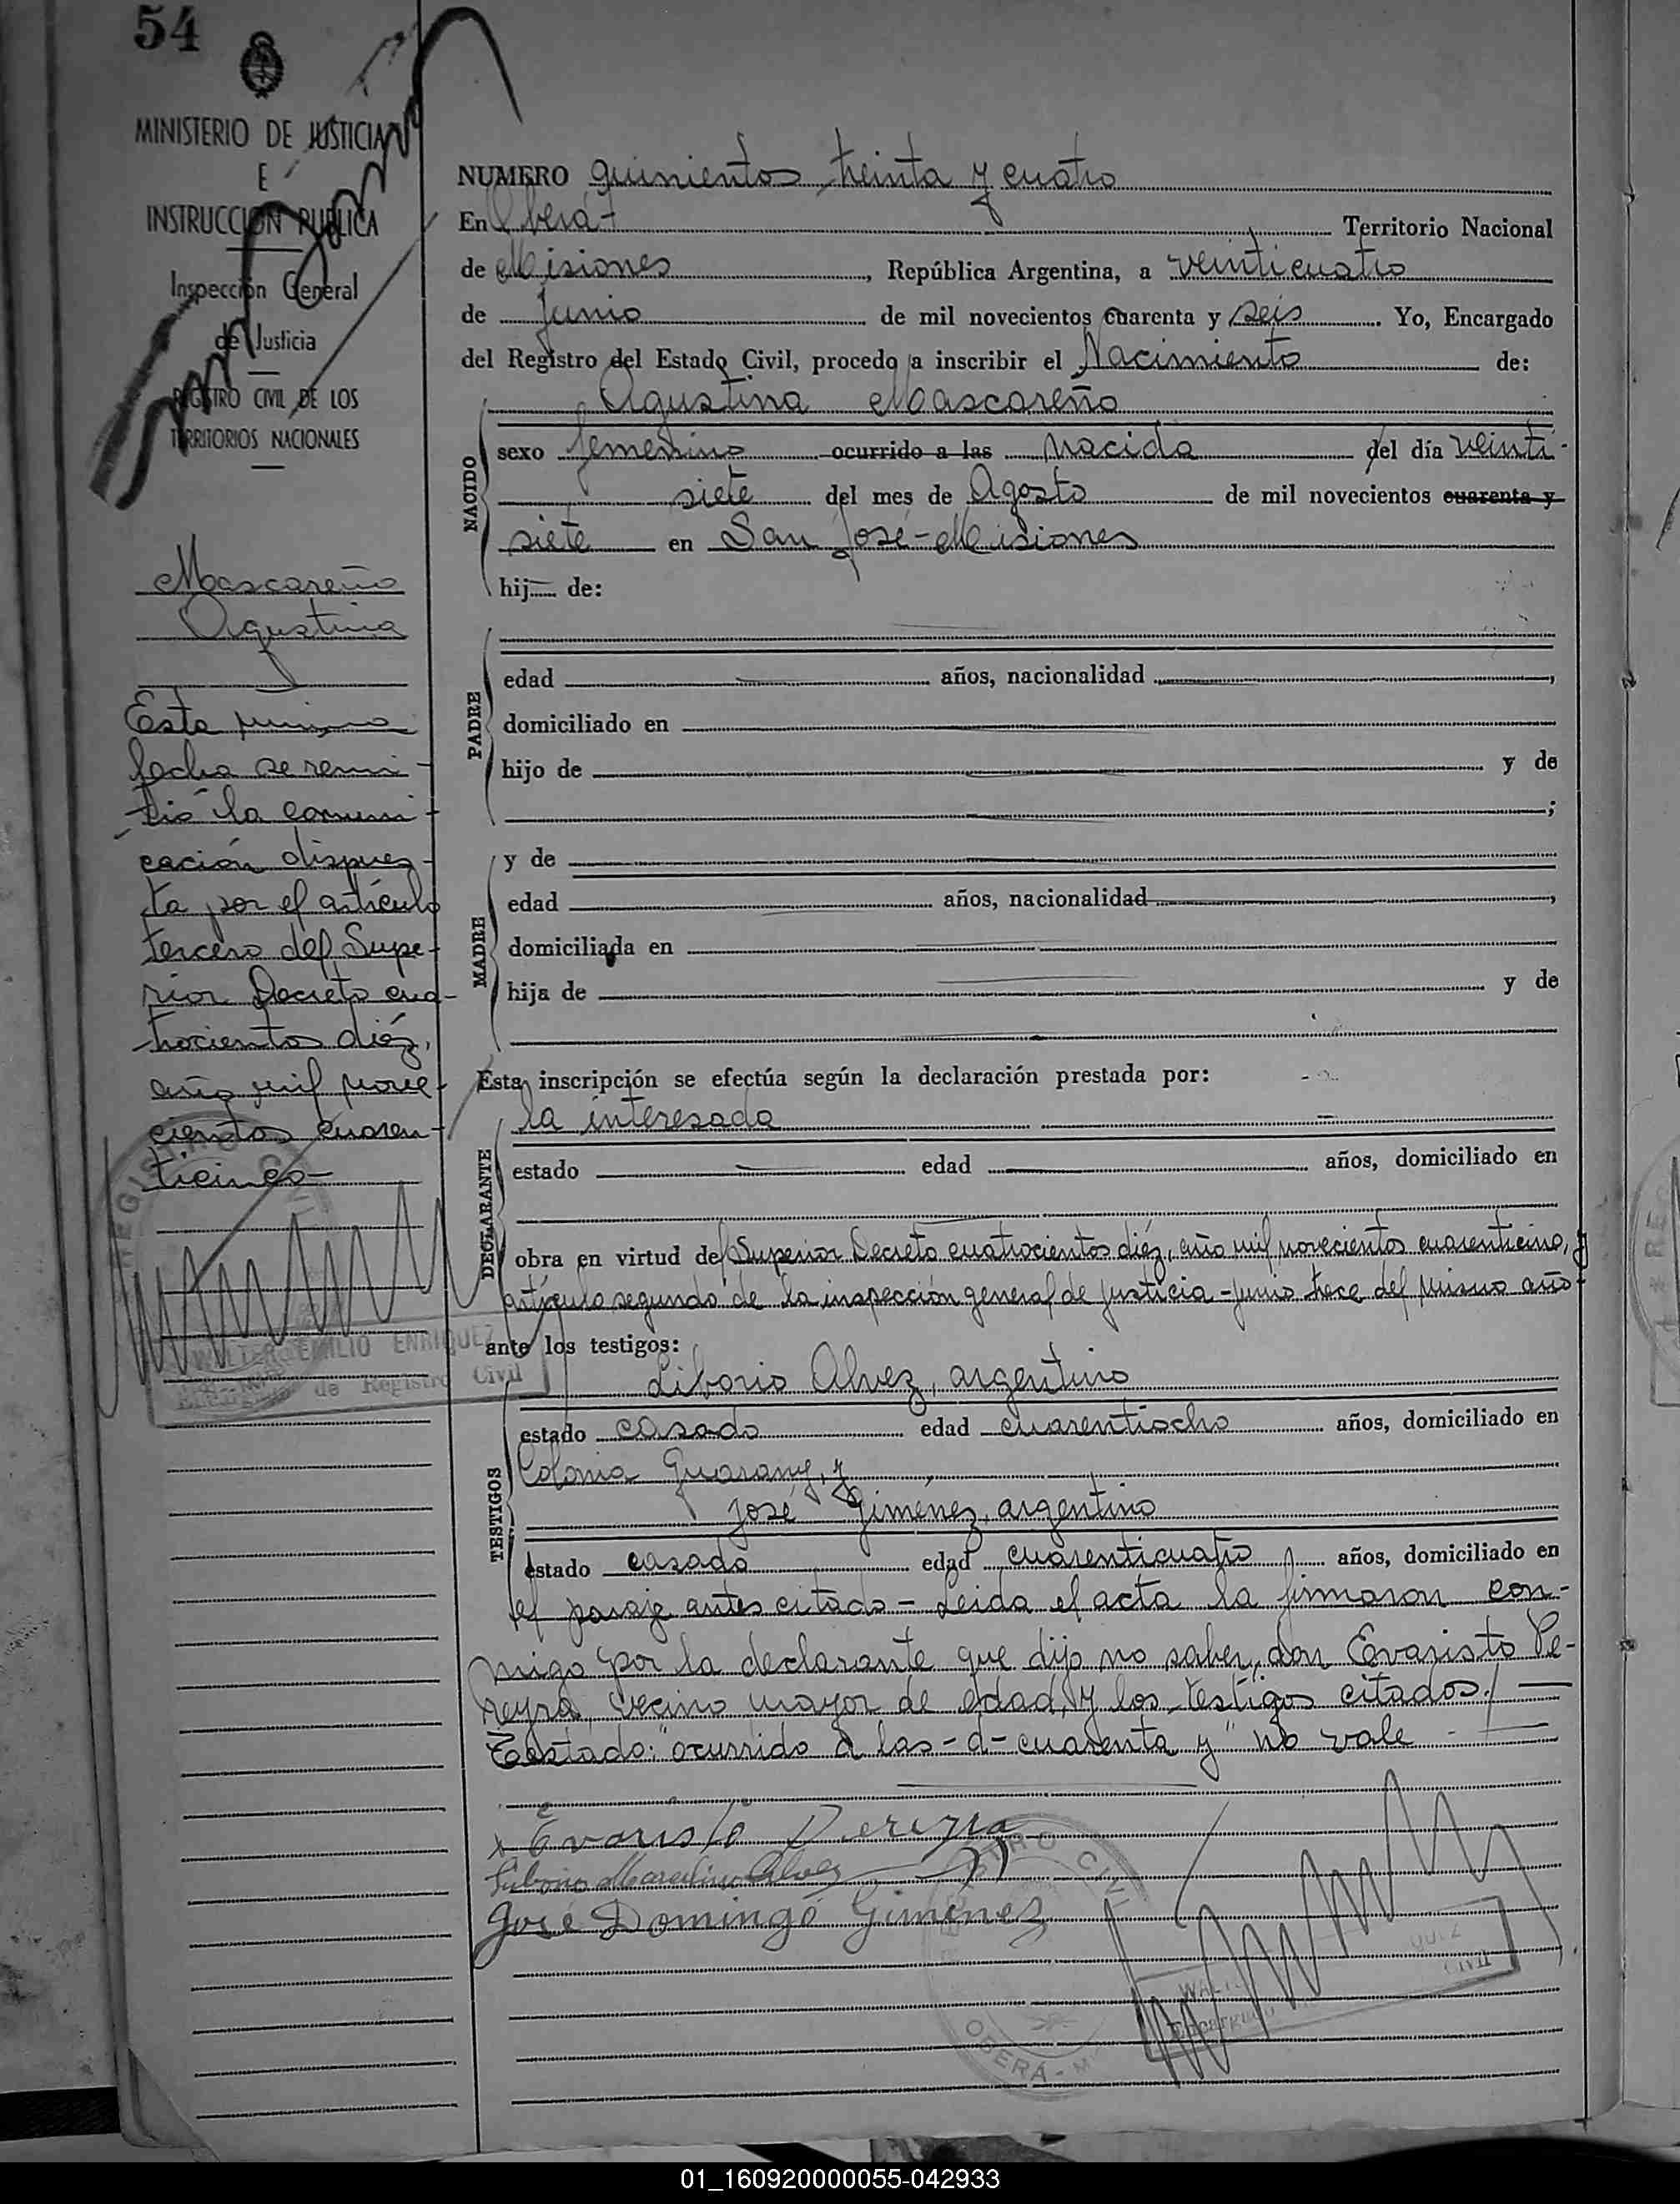 54
MINISTERIO DE JUSTICIA
E
INSTRUCCION PUBLICA
Inspección General
de Justicia
REGISTRO CIVIL DE LOS
TERRITORIOS NACIONALES
Mascareño
Agustina
Esta misma
fecha se remi-
tió la comuni-
cación dispues-
ta por el artículo
tercero del Supe-
rior Decreto cua-
trocientos diéz,
año mil nove-
cientos cuaren-
ticinco-
WALTER EMILIO ENRIQUEZ
Encargado de Registro Civil
NUMERO quinientos treinta y cuatro
En Oberá- Territorio Nacional
de Misiones, República Argentina, a veinticuatro
de Junio de mil novecientos cuarenta y seis. Yo, Encargado
del Registro del Estado Civil, procedo a inscribir el Nacimiento de:
Agustina Mascareño
NACIDO
sexo femenino ocurrido a las nacida del día veinti-
siete del mes de Agosto de mil novecientos cuarenta y
siete en San José-Misiones
hij de:
PADRE
edad años, nacionalidad ,
domiciliado en
hijo de y de
;
MADRE
y de
edad años, nacionalidad ,
domiciliada en
hija de y de
Esta inscripción se efectúa según la declaración prestada por:
DECLARANTE
la interesada
estado edad años, domiciliado en
obra en virtud del Superior Decreto cuatrocientos diéz, año mil novecientos cuarenticinco, y
artículo segundo de la inspección general de justicia-junio trece del mismo año-
ante los testigos:
TESTIGOS
Liborio Alvez, argentino
estado casado edad cuarentiocho años, domiciliado en
Colonia Guarany, y
José Giménez, argentino
estado casado edad cuarenticuatro años, domiciliado en
el paraje antes citado- Leida el acta la firmaron con-
migo por la declarante que dijo no saber, don Evaristo Pe-
reyra, vecino mayor de edad, y los testigos citados./
Testado: "ocurrido a las-d-cuarenta y" no vale
x Evaristo Pereyra
Liborio Marcelino Alvez
José Domingo Giménez
REGISTRO CIVIL
OBERÁ-M
WALT QUEZ
Encargado Civil
01_160920000055-042933